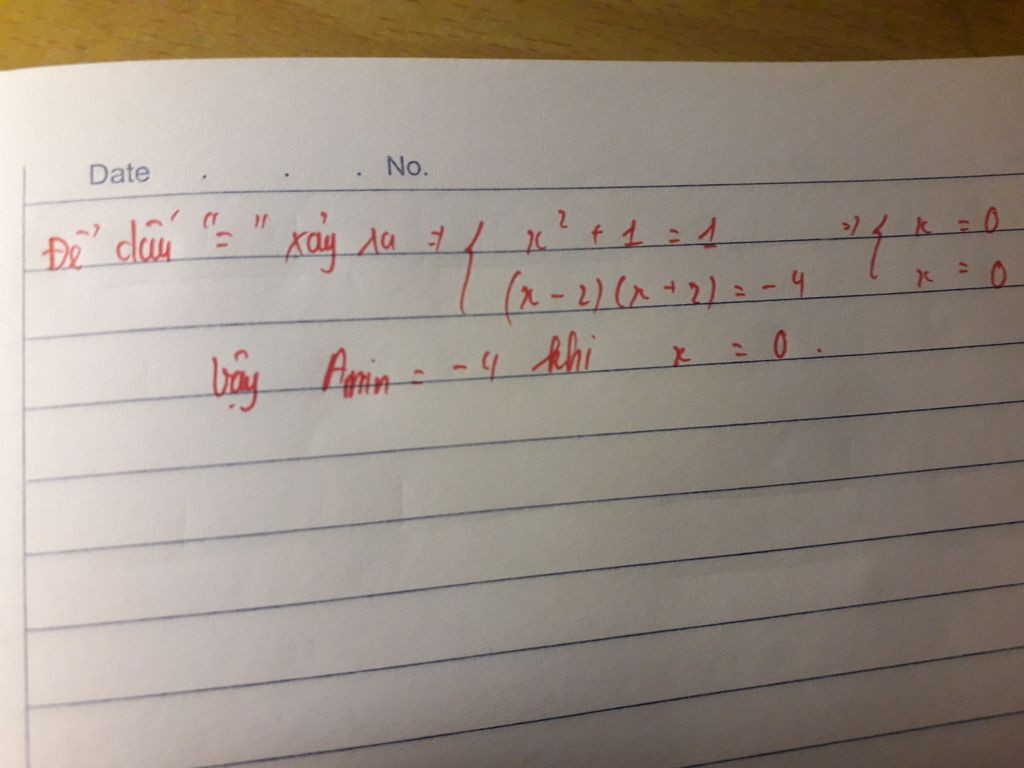 Date . . . No.
Để dấu "=" xảy ra => { x² + 1 = 1 => { x = 0
(x - 2)(x + 2) = -4 x = 0
Vậy Amin = -4 khi x = 0.